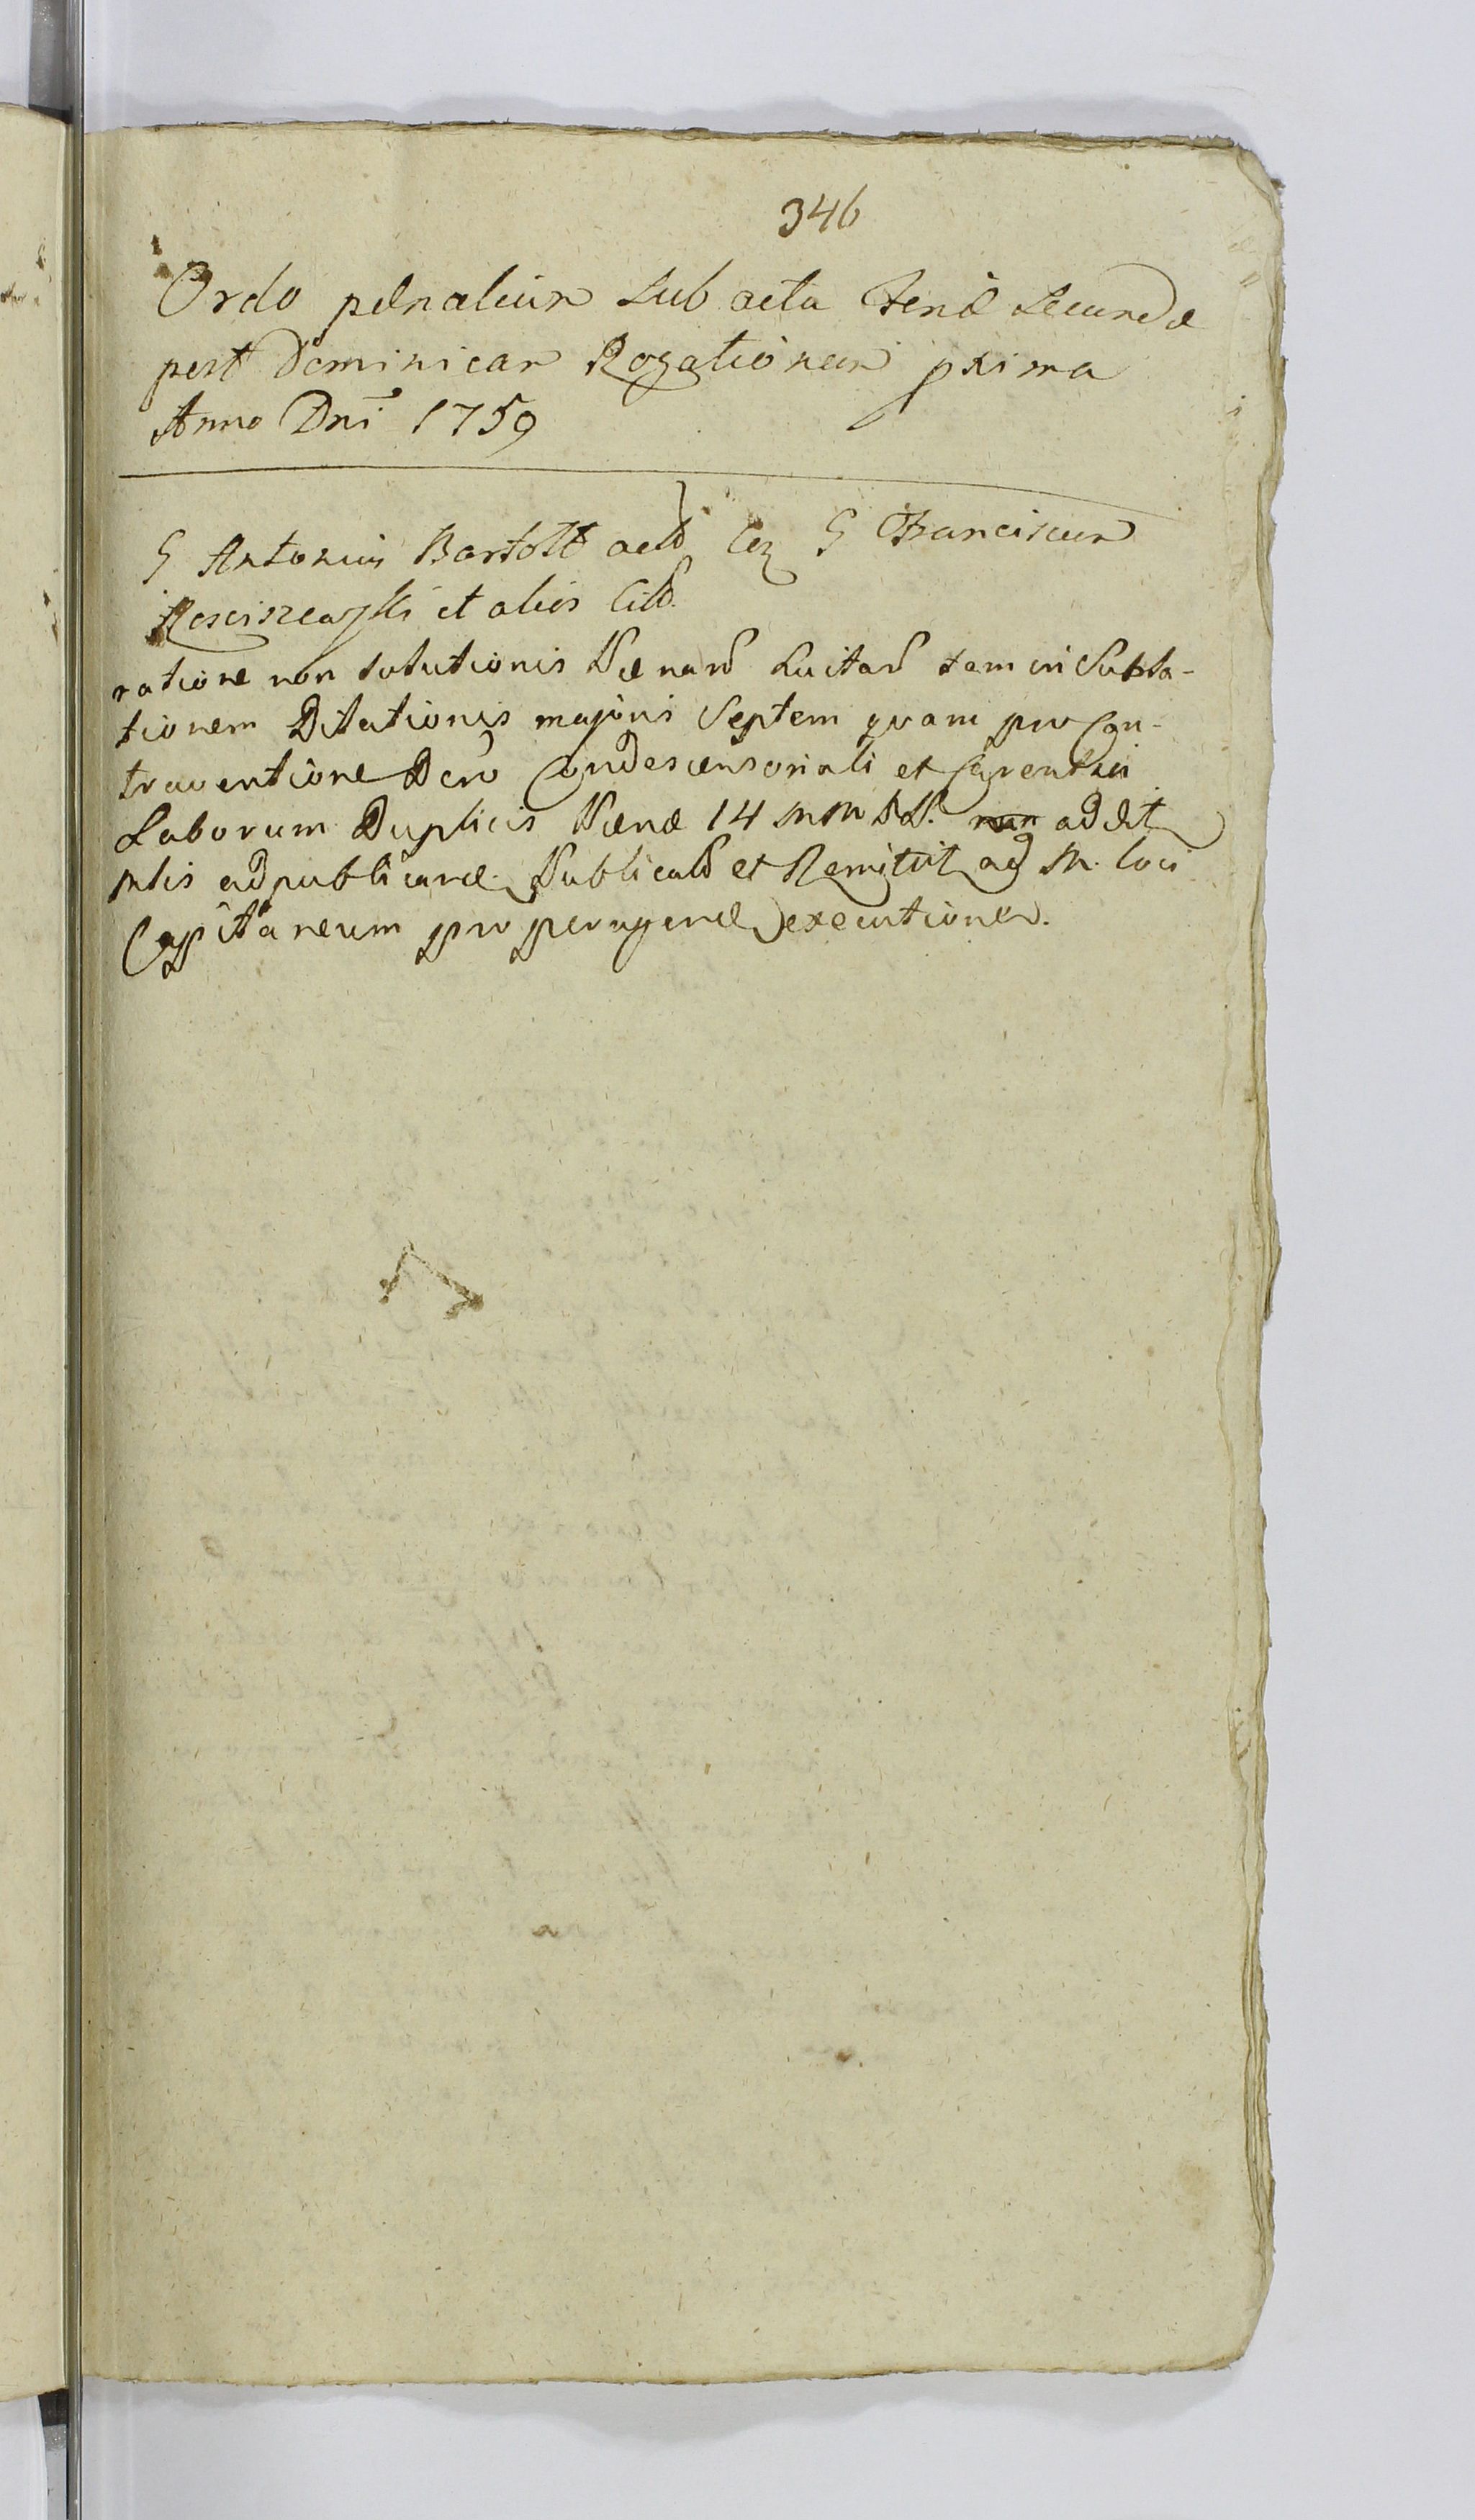 346
Ordo pænalium sub acta Feriæ Secundæ
post Dominicam Rogationum prima
Anno Dni 1759
G Antonius Bartolt actō Ctr G Franciscum
Rosciszewski et alios Citō.
ratione non solutionis Pænarō Luitarō tam in Subla-
tionem Dilationis majoris Septem quam pro Con-
traventione Dcro Condescensoriali et Carentia
Laborum Duplicis Pænæ 14 MMPP. addit
ptis ad publicanæ Publicatō et Remittit ad M. loci
Capitaneum pro peragenæ executionem.